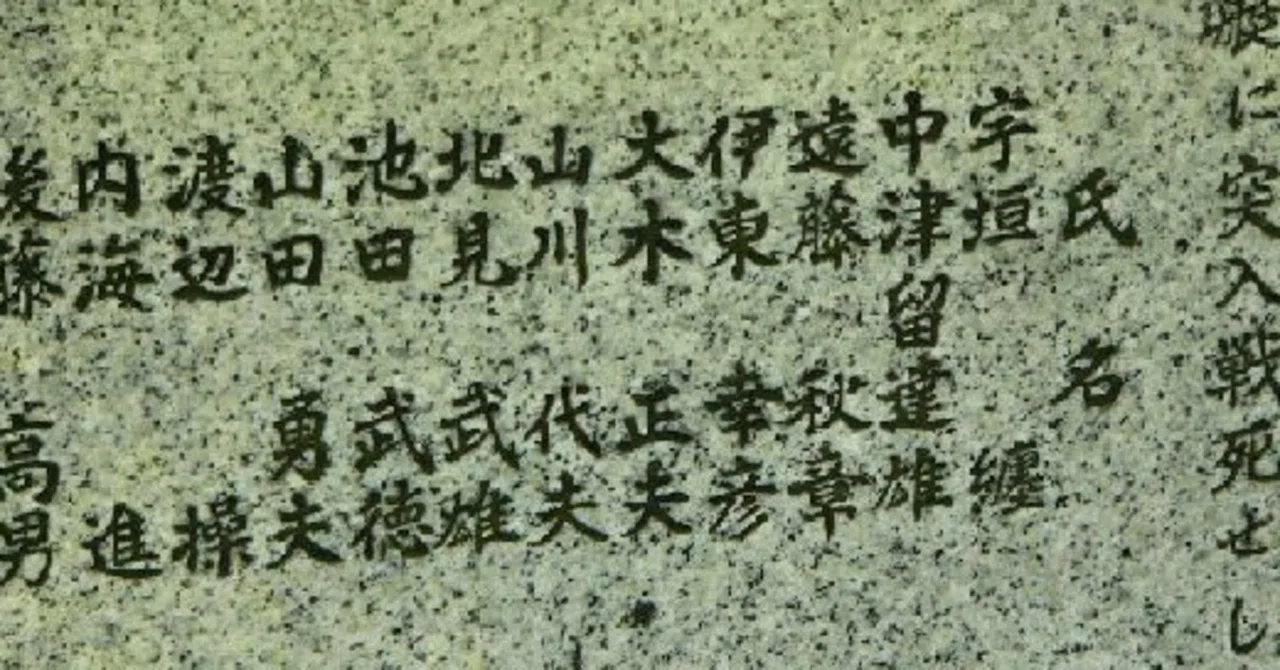 艇に突入戦死せし
氏名
宇垣 纏
中津留達雄
遠藤秋章
伊東幸彦
大木正夫
山川代夫
北見武雄
池田武徳
山田勇夫
渡辺操
内海進
後藤高男